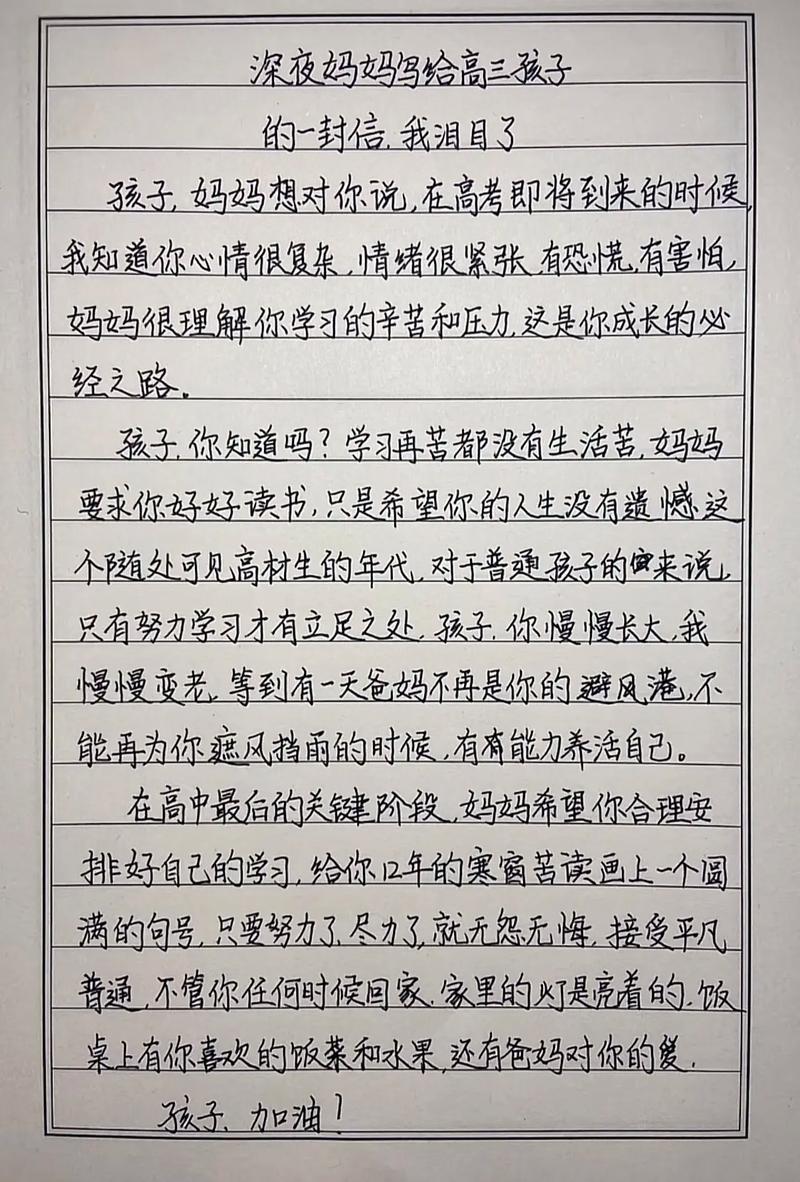 深夜妈妈写给高三孩子
的一封信,我泪目了
孩子,妈妈想对你说,在高考即将到来的时候,
我知道你心情很复杂,情绪很紧张,有恐慌,有害怕,
妈妈很理解你学习的辛苦和压力,这是你成长的必
经之路。
孩子,你知道吗?学习再苦都没有生活苦,妈妈
要求你好好读书,只是希望你的人生没有遗憾,这
个随处可见高材生的年代,对于普通孩子的来说,
只有努力学习才有立足之处,孩子,你慢慢长大,我
慢慢变老,等到有一天爸妈不再是你的避风港,不
能再为你遮风挡雨的时候,有能力养活自己。
在高中最后的关键阶段,妈妈希望你合理安
排好自己的学习,给你12年的寒窗苦读画上一个圆
满的句号,只要努力了,尽力了,就无怨无悔,接受平凡
普通,不管你任何时候回家,家里的灯是亮着的,饭
桌上有你喜欢的饭菜和水果,还有爸妈对你的爱.
孩子,加油!